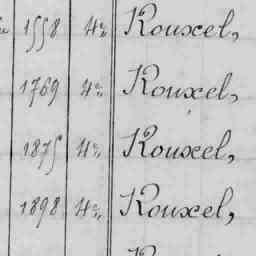 1558 4º Rouxel,
1769 4º Rouxel,
1875 4º Rouxel,
1898 4º Rouxel,